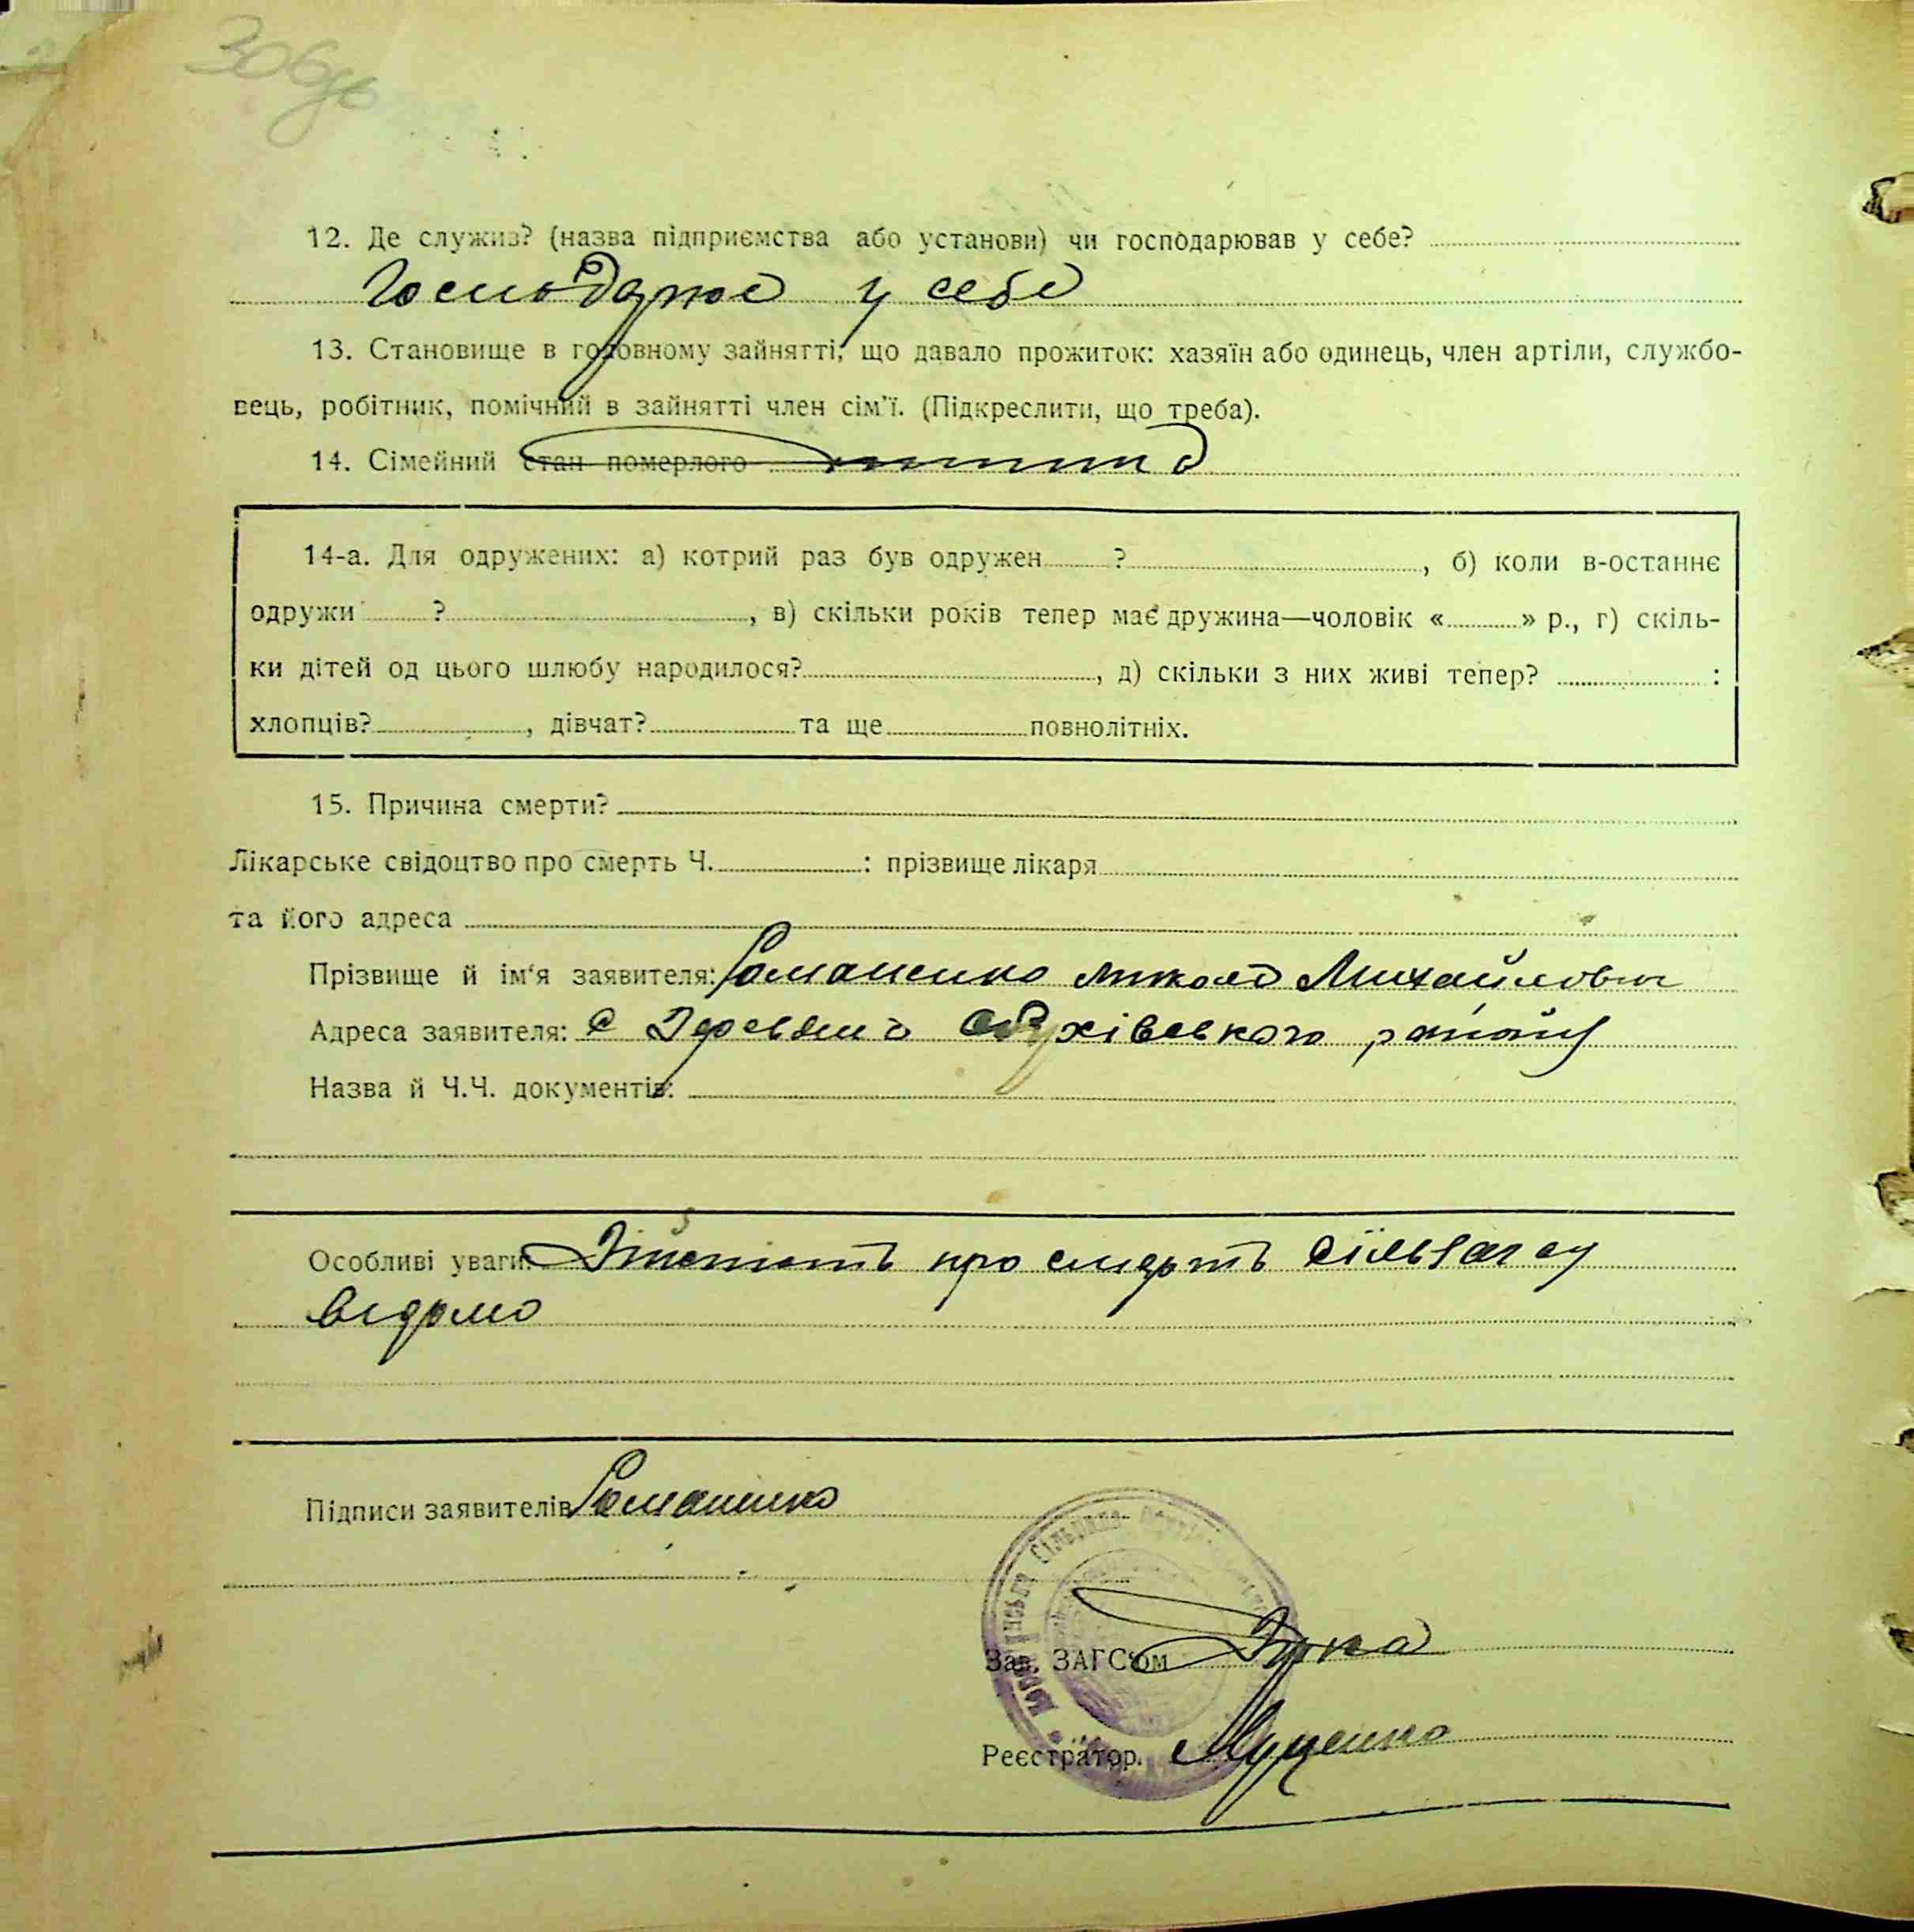 306
12. Де служив? (назва підприємства або установи) чи господарював у себе?
Господарює у себе
13. Становище в головному зайнятті, що давало прожиток: хазяїн або одинець, член артіли, службо-
вець, робітник, помічний в зайнятті член сім'ї. (Підкреслити, що треба).
14. Сімейний стан померлого
14-а. Для одружених: а) котрий раз був одружен ? , б) коли в-останнє
одружи ? , в) скільки років тепер має дружина—чоловік « » р., г) скіль-
ки дітей од цього шлюбу народилося? , д) скільки з них живі тепер? :
хлопців? , дівчат? та ще повнолітніх.
15. Причина смерти?
Лікарське свідоцтво про смерть Ч. : прізвище лікаря
та його адреса
Прізвище й ім'я заявителя: Романенко Микола Михайлович
Адреса заявителя: с Деревяна Обухівського району
Назва й Ч.Ч. документів:
Особливі уваги: про смерть
відомо
Підписи заявителів Романенко
Сільрада
Зав. ЗАГС'ом
Реєстратор. Луценко